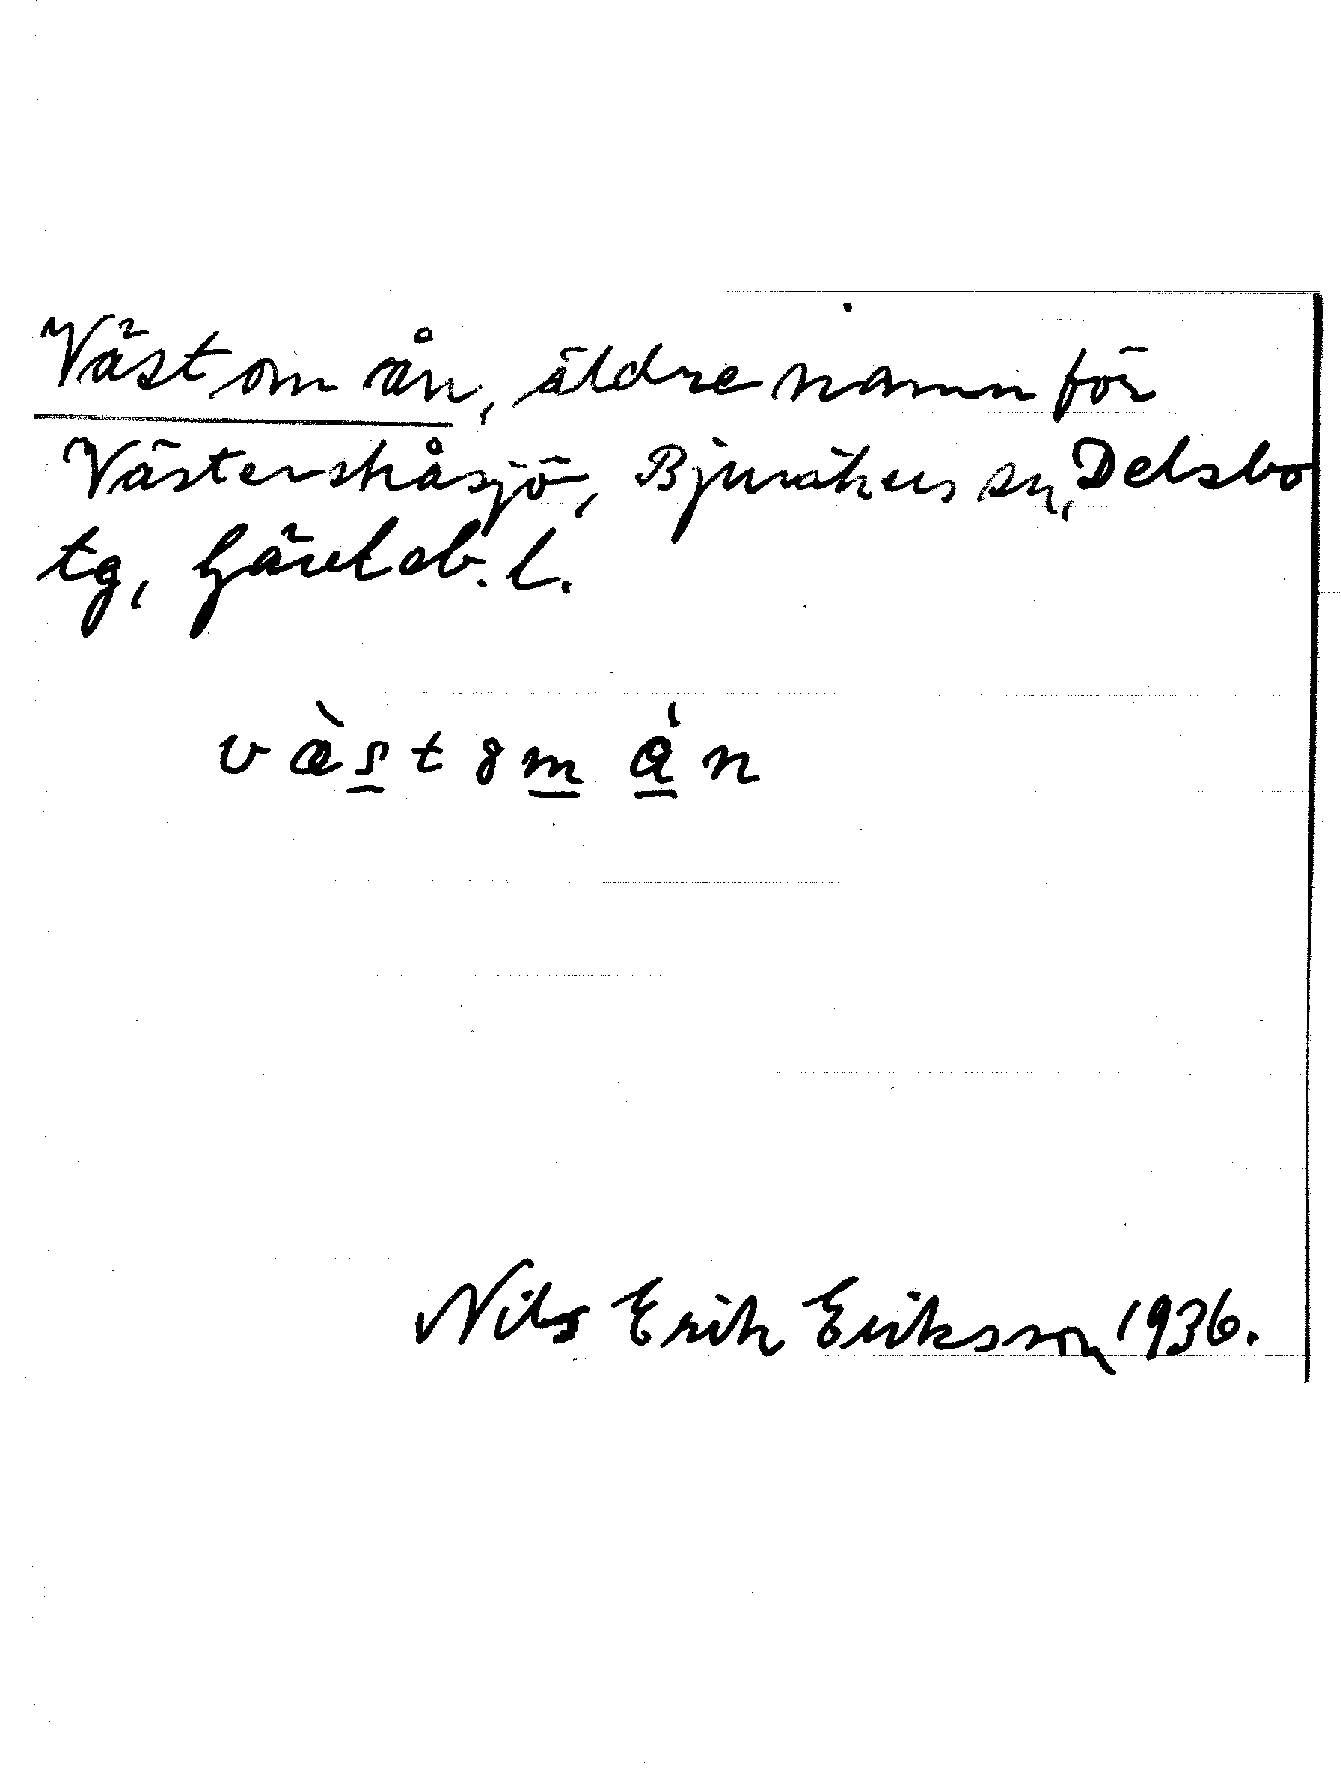 Väst om ån, äldre namn för
Västerskåsjö, Bjuråkers sn, Delsbo
tg, Gävleb. l.
vàstom án
Nils Erik Eriksson 1936.